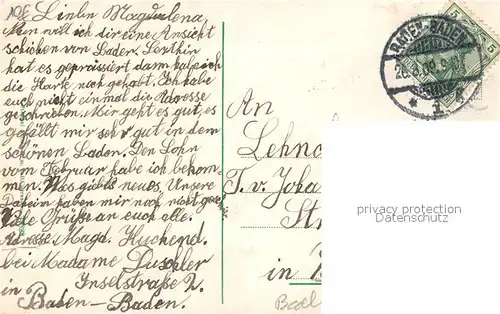 Liebe Magdalena
Nun will ich dir eine Ansicht
schicken von Baden. Letzthin
hat es gepressiert dann habe ich
die Karte noch gehabt. Ich habe
euch nicht einmal die Adresse
geschrieben. Mir geht es gut, es
gefällt mir sehr gut in dem
schönen Baden. Den Lohn
vom Februar habe ich bekom-
men. Was giebts neues, Unsere
Daheim haben mir noch nicht
Viele Grüsse an euch alle.
Adresse. Magd.
bei Madame
in Inselstraße 2.
Baden-Baden.
BADEN-BADEN
5
5
An
Lehn
T. v. Joha
St
in
privacy protection
Datenschutz